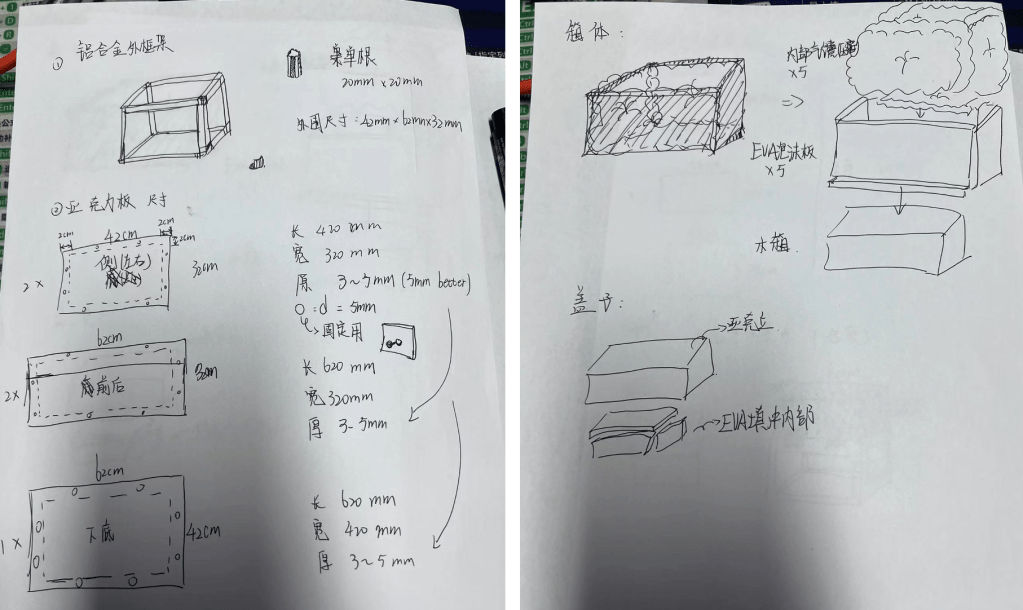 ① 铝合金外框架
单根
20mm × 20mm
外围尺寸:42mm×62mm×32mm
②亚克力板 尺寸
2cm
42cm
2cm
2cm
侧(左右)
32cm
2×
长 420 mm
宽 320 mm
厚 3~5mm (5mm better)
O:d = 5mm
固定用
62cm
前后
2×
长 620 mm
宽 320mm
厚 3~5mm
62cm
下底
42cm
1×
长 620 mm
宽 420 mm
厚 3~5 mm
箱体:
内部气
×5
=>
EVA泡沫板
×5
水箱
盖子:
亚克立
EVA填冲内部